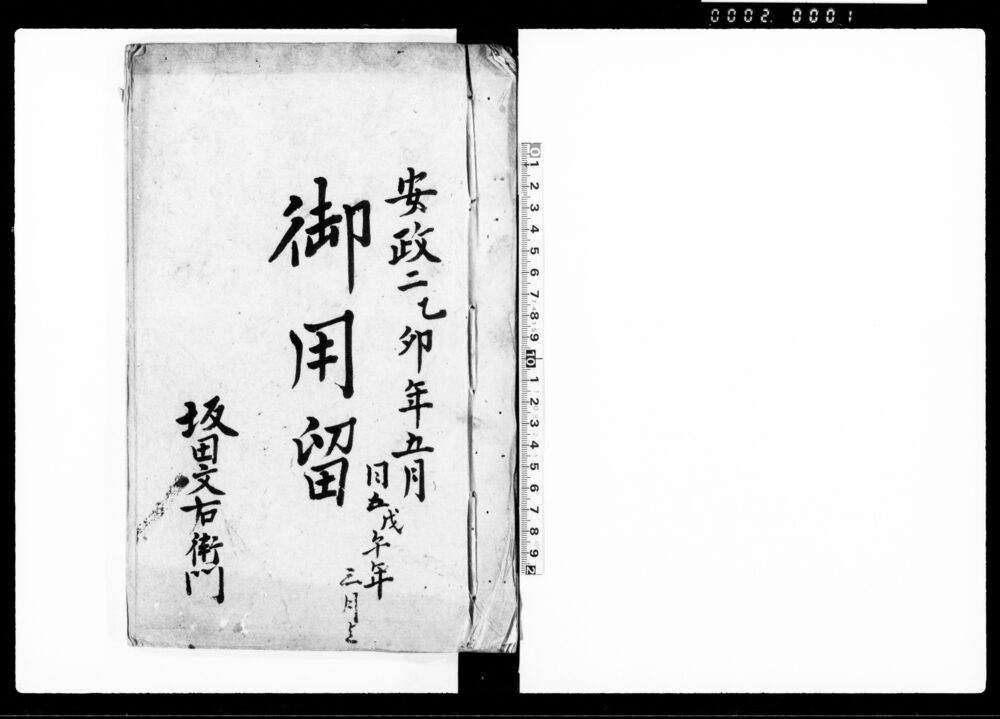 0002 0001
安政二乙卯年五月
同五戊午年
三月迄
御用留
坂田文右衛門
0 1 2 3 4 5 6 7 8 9 10 1 2 3 4 5 6 7 8 9 2